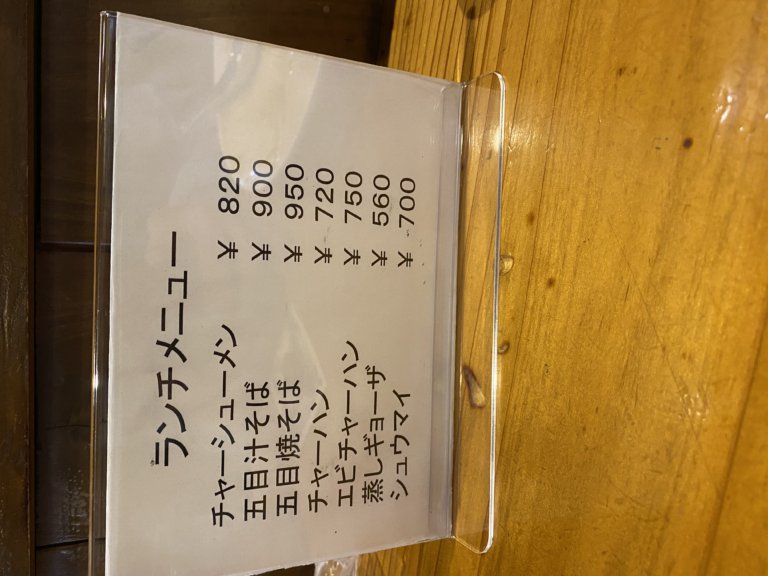 ランチメニュー
チャーシューメン ¥ 820
五目汁そば ¥ 900
五目焼そば ¥ 950
チャーハン ¥ 720
エビチャーハン ¥ 750
蒸しギョーザ ¥ 560
シュウマイ ¥ 700